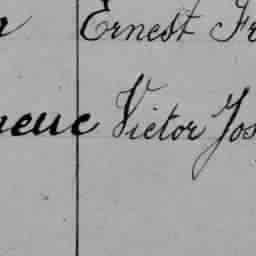 Ernest Fr
neuc Victor Jos